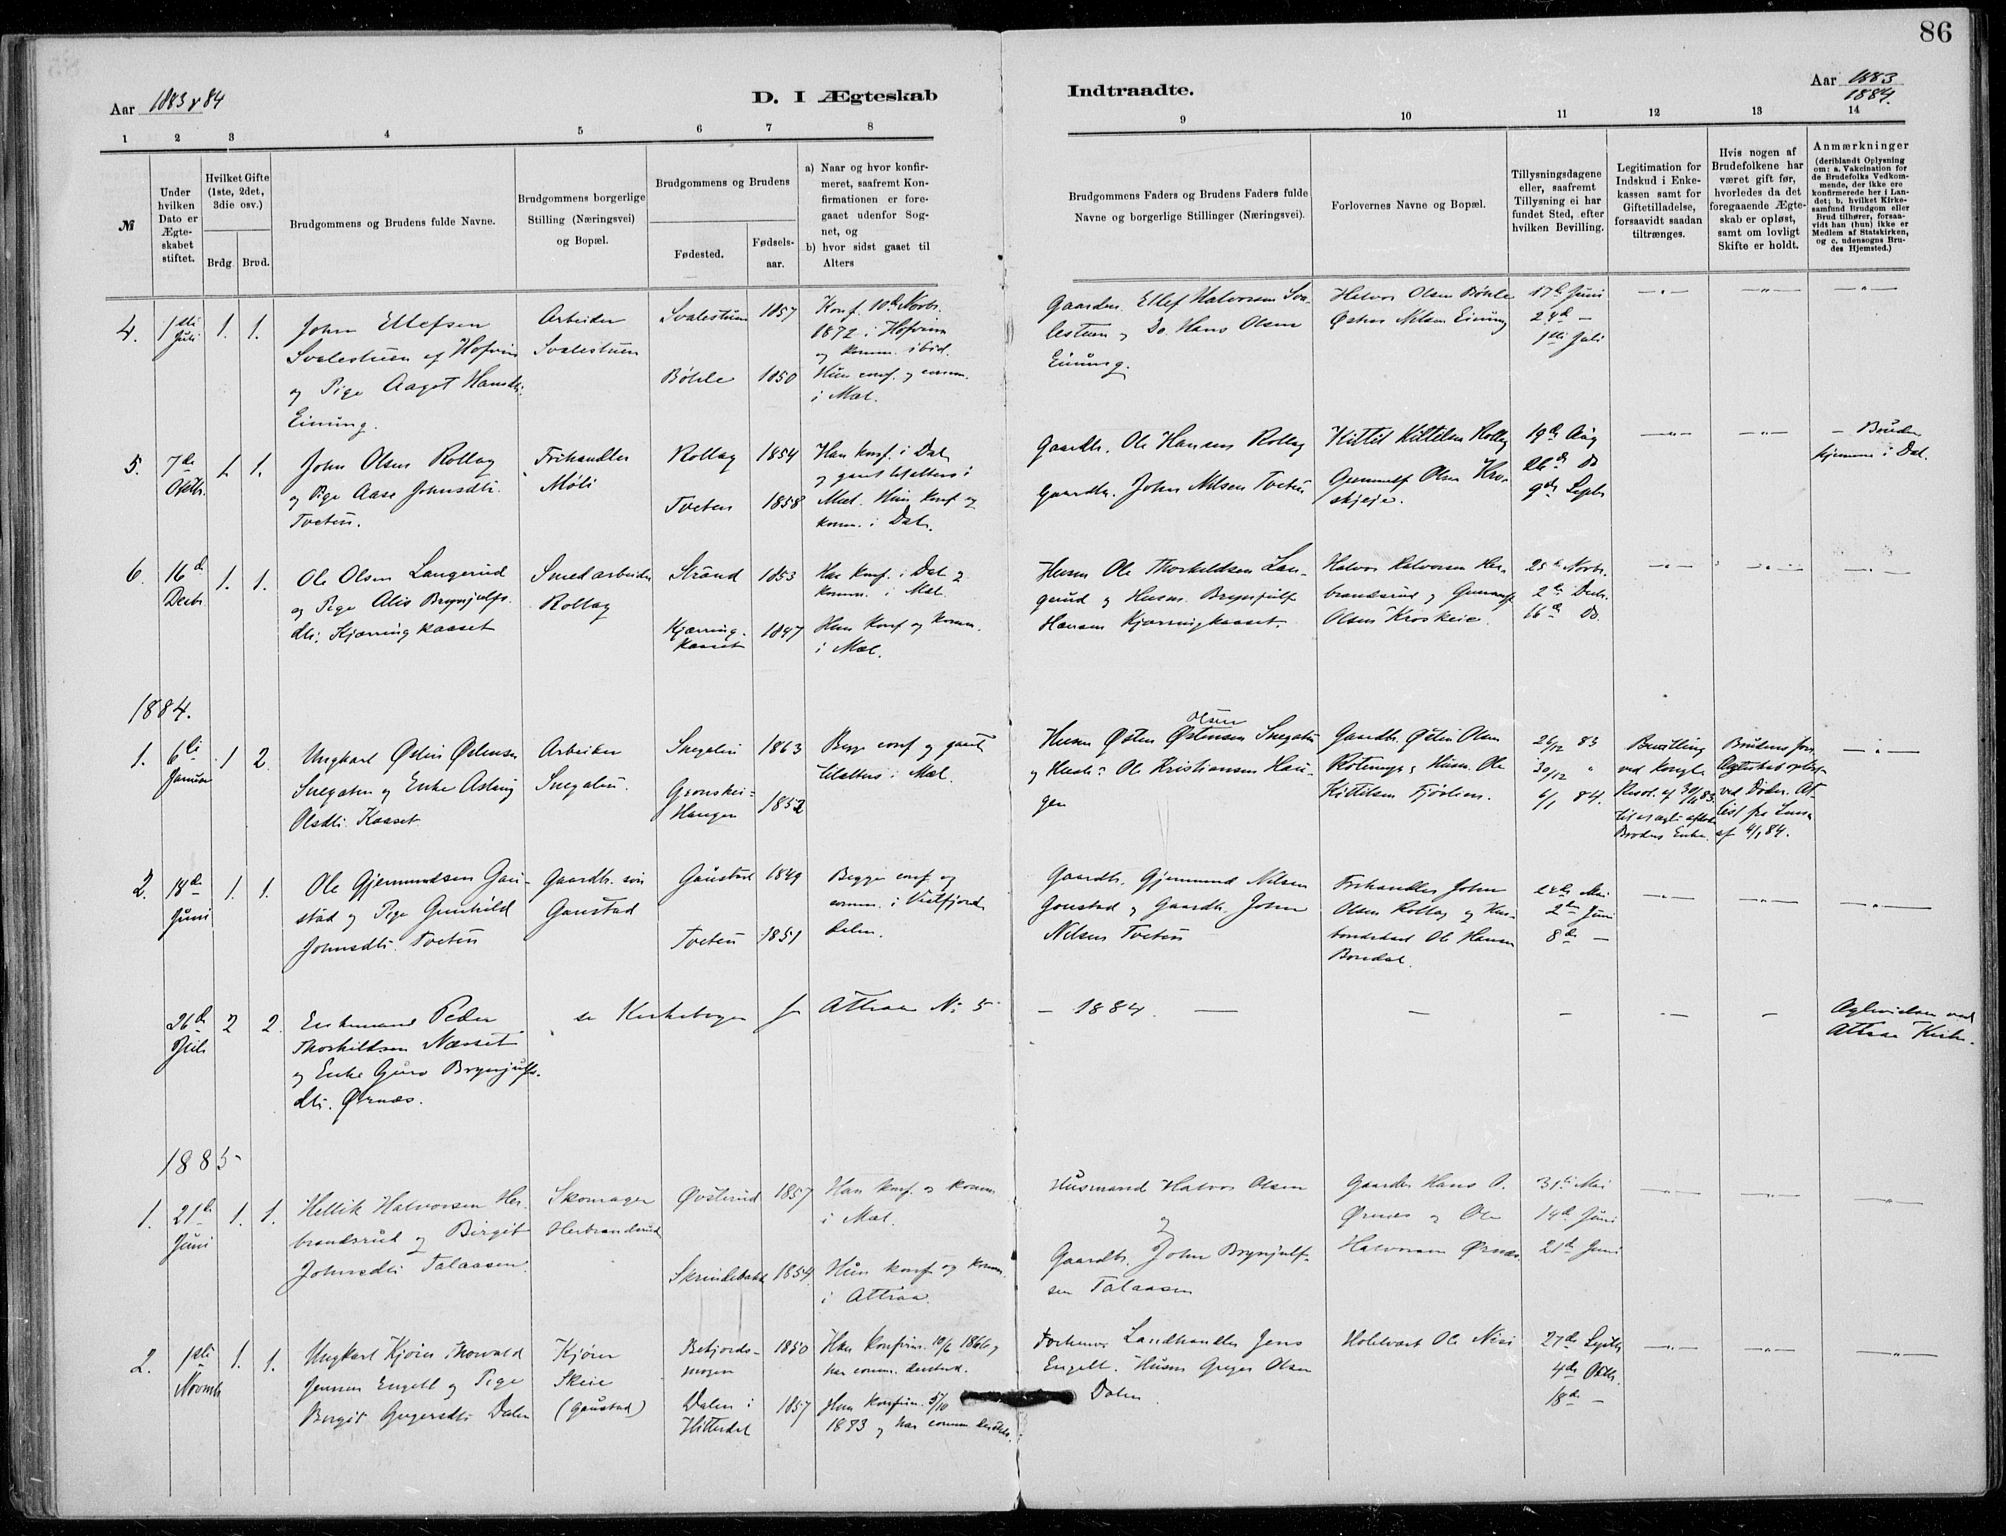 86
Aar 1883 & 84
D. I Ægteskab
Indtraadte.
Aar 1883
1884.
1 2 3 4 5 6 7 8 9 10 11 12 13 14
№
Under
hvilken
Dato er
Ægte-
skabet
stiftet.
Hvilket Gifte
(1ste, 2det,
3die osv.)
Brdg. Brud.
Brudgommens og Brudens fulde Navne.
Brudgommens borgerlige
Stilling (Næringsvei)
og Bopæl.
Brudgommens og Brudens
Fødested.
Fødsels-
aar.
a) Naar og hvor konfir-
meret, saafremt Kon-
firmationen er fore-
gaaet udenfor Sog-
net, og
b) hvor sidst gaaet til
Alters
Brudgommens Faders og Brudens Faders fulde
Navne og borgerlige Stillinger (Næringsvei).
Forlovernes Navne og Bopæl.
Tillysningsdagene
eller, saafremt
Tillysning ei har
fundet Sted, efter
hvilken Bevilling.
Legitimation for
Indskud i Enke-
kassen samt for
Giftetilladelse,
forsaavidt saadan
tiltrænges.
Hvis nogen af
Brudefolkene har
været gift før,
hvorledes da det
foregaaende Ægte-
skab er opløst,
samt om lovligt
Skifte er holdt.
Anmærkninger
(deriblandt Oplysning
om: a. Vakcination for
de Brudefolks Vedkom-
mende, der ikke ere
konfirmerede her i Lan-
det; b. hvilket Kirke-
samfund Brudgom eller
Brud tilhører, forsaa-
vidt han (hun) ikke er
Medlem af Statskirken,
og c. udensogns Bru-
des Hjemsted.)
4. 1ste Juli 1. 1.
John Ellefsen
Svalestuen af Hofvin
og Pige Aaget Hansdtr.
Einung.
Arbeider
Svalestuen
Svalestuen 1857
Bøhle 1850
Konf. 10de Novbr.
1872 i Hofvin
og komm. ibid.
Hun conf. og comm.
i Mæl.
Gaardbr. Ellef Halvorsen Sva-
lestuen og Do Hans Olsen
Einung.
Halvor Olsen Bøhle
Østen Nilsen Einung
17de Juni
24de —
1ste Juli
5. 7de Octbr. 1. 1.
John Olsen Rollag
og Pige Aase Johnsdtr.
Tveten.
Frihandler
Møli
Rollag 1854
Tveten 1858
Han konf. i Dal
og gaaet til alters i
Mæl. Hun konf. og
komm. i Dal.
Gaardbr. Ole Hansen Rollag
Gaardbr. John Nilsen Tveten
Kittil Kittilsen Rollag
Gjermund Olsen Kro-
skjeie.
19de Aug
26de Do
9de Septbr
— Bruden
hjemme i Dal.
6. 16de Decbr 1. 1.
Ole Olsen Langerud
og Pige Alis Brynjulfs-
dtr. Kjærringkaaset
Smedarbeider
Rollag
Strand 1853
Kjærring-
kaaset 1847
Han konf. i Dal og
komm. i Mæl.
Hun konf. og komm.
i Mæl.
Husm Ole Thorkildsen Lan-
gerud og Husm. Brynjulf
Hansen Kjærringkaaset.
Halvor Halvorsen Her-
brandsrud og
Olsen Kroskeie.
25de Novbr.
2de Decbr.
16de Do.
1884.
1. 6te Januar 1 2.
Ungkarl Østen Østensen
Snegalen og Enke Aslaug
Olsdtr. Kaaset
Arbeider
Snegalen.
Snegalen 1863
Haugen 1852
Begge conf. og gaaet
til alters i Mæl.
Olsen
Husm Østen Østensen Snegalen
og Ole Kristiansen Hau-
gen
Gaardbr. Østen Olsen
Husm. Ole
Kittilsen
26/12 83
30/12 "
6/1 84.
Bevilling
ved Kongl.
Resol. af 30/11 83.
Brodrs Enke.
Brudens forr.
Ægteskab opløst
ved Døden. At-
test fra
af 4/1 84.
2. 18de Juni 1. 1.
Ole Gjermundsen Gau-
stad og Pige Gunhild
Johnsdtr. Tveten
Gaardbr. søn
Gaustad
Gaustad 1849
Tveten 1851
Begge conf. og
comm. i Vestfjord-
dalen.
Gaardbr. Gjermund Nilsen
Gaustad og Gaardb. John
Nilsen Tveten
Frihandler John
Olsen Rollag og
Ole Hansen
Boredal.
24de Mai
2den Juni
8de —
26de Juli 2 2.
Enkemand Peder
Thorkildsen Næsset
og Enke Guro Brynjulfs-
dtr. Ørnæs.
se Kirkebogen f. Attraa No 5 — 1884.
Ægtevielsen ved
Attraa Kirke.
1885
1. 21de Juni 1. 1.
Hellik Halvorsen Her-
brandsrud og Birgit
Johnsdtr. Talaasen.
Skomager
Herbrandsrud
Øvsterud 1857
Skrindebakk 1854.
Han konf. og komm.
i Mæl.
Hun konf. og komm.
i Attraa.
Husmand Halvor Olsen
og
Gaardbr. John Brynjulf-
sen Talaasen
Gaardbr Hans O.
Ørnæs og Ole
Halvorsen Ørnæs.
31te Mai
14de Juni
21de Juni
2. 1ste Novmb 1. 1.
Ungkarl Kjører Thorvald
Jensen Engell og Pige
Bergit Gregersdtr. Dalen
Kjører
Skeie
(Gaustad)
mogen 1850
Dalen i
Hitterdal 1857
Han konfirm. 10/6 1866 og
har comm. dersted.
Hun konfirm. 5/10
1873 og har comm. dersteds.
Landhandler Jens
Engell. Husm Greger Olsen
Dalen.
Ole
27de Septbr
4de Octbr.
18de —